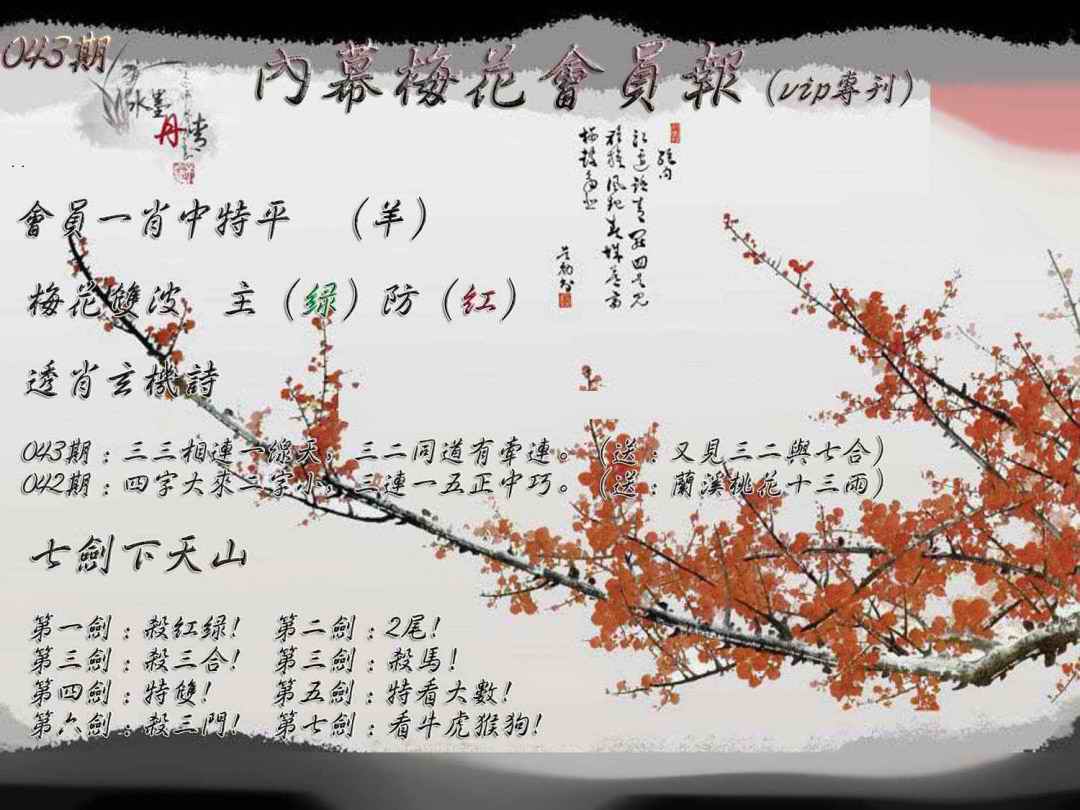 043期
內幕梅花會員報(vip專刊)
水墨
丹青
會員一肖中特平 (羊)
梅花雙波 主(绿)防(红)
透肖玄機詩
043期:三三相連一線天,三二同道有牽連。(送:又見三二與七合)
042期:四字大來二字小,三連一五正中巧。(送:蘭溪桃花十三雨)
七劍下天山
第一劍:殺紅绿! 第二劍:2尾!
第三劍:殺三合! 第三劍:殺馬!
第四劍:特雙! 第五劍:特看大數!
第六劍:殺三門! 第七劍:看牛虎猴狗!